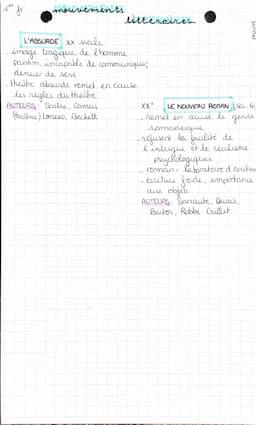 1re fr
mouvements
littéraires
L'ABSURDE XXe siècle
- image tragique de l'homme
pantin, incapable de communiquer,
dénué de sens
- théâtre absurde remet en cause
les règles du théâtre
AUTEURS: Sartre, Camus
(théâtre) Ionesco, Beckett
XXe LE NOUVEAU ROMAN (50-6
- remet en cause le genre
romanesque
- refusent la facilité de
l'intrigue et le réalisme
psychologique
- roman: laboratoire d'écriture
- écriture froide, importance
aux objets
AUTEURS: Sarraute, Duras,
Butor, Robbe-Grillet